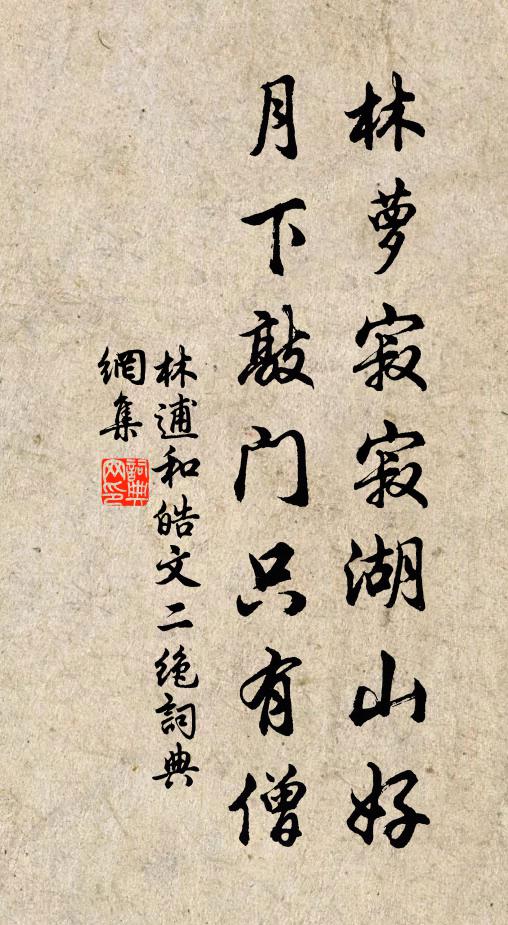 林萝寂寂湖山好
月下敲门只有僧
林逋和皓文二绝詞典
網集
詞典
网印